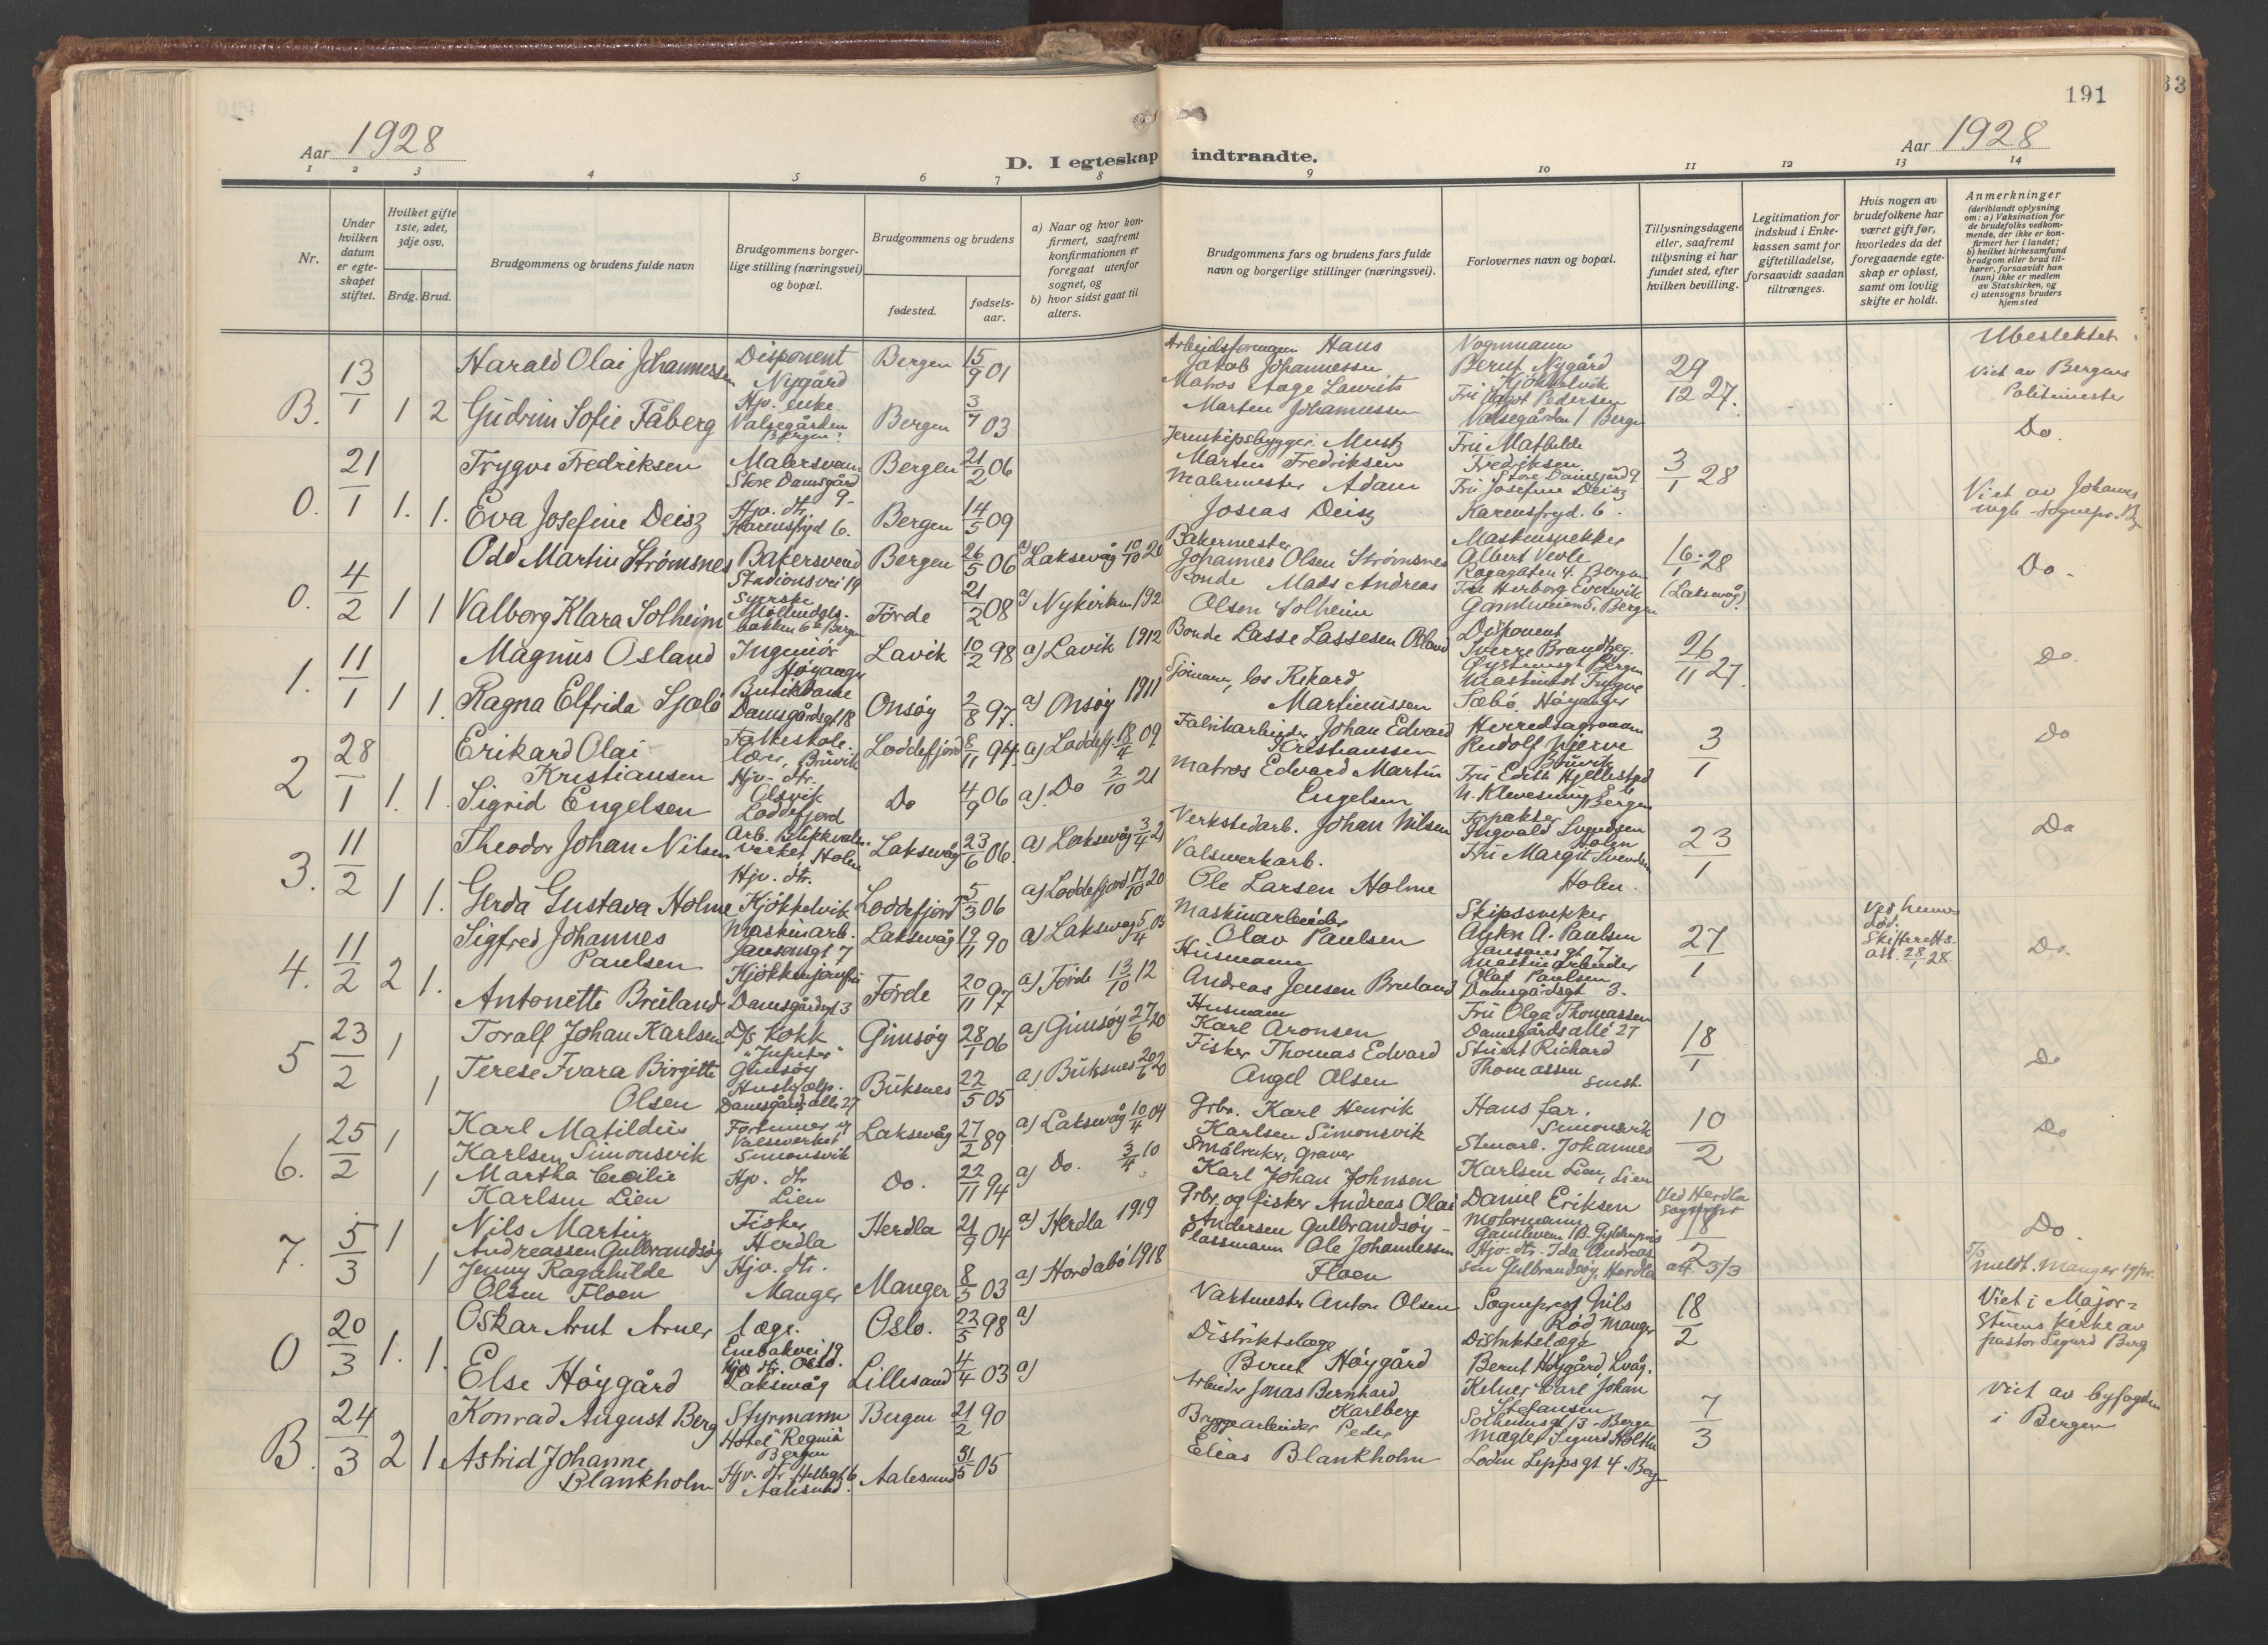 191
33
Aar 1928
D. I egteskap indtraadte.
Aar 1928
1 2 3 4 5 6 7 8 9 10 11 12 13 14
Nr.
Under hvilken datum er egteskapet stiftet.
Hvilket gifte 1ste, 2det, 3dje osv.
Brdg. Brud.
Brudgommens og brudens fulde navn
Brudgommens borgerlige stilling (næringsvei) og bopæl.
Brudgommens og brudens
fødested.
fødselsaar.
a) Naar og hvor konfirmert, saafremt konfirmationen er foregaat utenfor sognet, og
b) hvor sidst gaat til alters.
Brudgommens fars og brudens fars fulde navn og borgerlige stillinger (næringsvei).
Forlovernes navn og bopæl.
Tillysningsdagene eller, saafremt tillysning ei har fundet sted, efter hvilken bevilling.
Legitimation for indskud i Enkekassen samt for giftetilladelse, forsaavidt saadan tiltrænges.
Hvis nogen av brudefolkene har været gift før, hvorledes da det foregaaende egteskap er opløst, samt om lovlig skifte er holdt.
Anmerkninger
(deriblandt oplysning om: a) Vaksination for de brudefolks vedkommende, der ikke er konfirmert her i landet; b) hvilket kirkesamfund brudgom eller brud tilhører, forsaavidt han (hun) ikke er medlem av Statskirken, og c) utensogns bruders hjemsted
B. 13/1 1 2
Harald Olai Johannessen Disponent Nygård Bergen 15/9 01
Gudrun Sofie Fåberg Hjv. enke Valsegården Bergen. Bergen 3/7 03
Arbeidsformann Hans Jakob Johannessen
Matros Aage Laurits Marten Johannessen
Vognmann Bernt Nygård Kjøkkelvik
Fru Pedersen Valsegården 1 Bergen
29/12 27.
Ubeslektet
Viet av Bergens Politimester
O. 21/1 1. 1.
Trygve Fredriksen Malersvenn Store Damsgård 9. Bergen 21/2 06
Eva Josefine Deisz Hjv. dtr. Karensfryd 6. Bergen 14/5 09
Jernskipsbygger Martin Fredriksen
Malermester Adam Josias Deisz
Fru Mathilde Fredriksen Store Damsgård 9
Fru Josefine Deisz Karensfryd. 6.
3/1 28
Do.
Viet av Johannes sognepr.
O. 4/2 1 1
Odd Martin Strømsnes Bakersvend Stadionsvei 19 Bergen 26/5 06 a) Laksevåg 10/10 20
Valborg Klara Solheim Syerske Bergen Førde 21/2 08 a) Nykirken 192
Bakermester Johannes Olsen Strømsnes
Bonde Mads Andreas Olsen Solheim
Maskinsnekker Albert Bergen
Fru Herborg Bergen
16/1-28 (Laksevåg)
Do-
1. 11/1 1 1.
Magnus Osland Ingeniør Høyanger Lavik 10/2 98 a) Lavik 1912
Ragna Elfrida Sjælø Butikdame Damsgårdsgt 18 Onsøy 2/8 97. a) Onsøy 1911
Bonde Lasse Lassesen Osland
Sjømann, los Rikard Martinussen
Disponent Sverre Bergen
Maskinist Trygve Sæbø. Høyanger
26/11 27.
Do.
2 28/1 1. 1.
Erikard Olai Kristiansen Folkeskolelærer, Brüvik Loddefjord 8/11 94. a) Loddefj. 18/4 09
Sigrid Engelsen Hjv. dtr. Olsvik Loddefjord Do 4/9 06 a) Do 2/10 21
Fabrikarbeider Johan Edvard Kristianssen
Matros Edvard Martin Engelsen
Herredsagronom Rudolf Brüvik
Fru Edith Hjellestad Bergen
3/1
Do
3. 11/2 1 1.
Theodor Johan Nilsen Arb. Blikkvalseverket, Holen Laksevåg 23/6 06. a) Laksevåg 3/4 21
Gerda Gustava Holme Hjv. dtr. Kjøkkelvik Loddefjord 5/3 06 a) Loddefjord 17/10 20
Verkstedarb. Johan Nilsen
Valsverkarb. Ole Larsen Holme
Ingvald Svendsen Holen
Fru Margit Svendsen Holen.
23/1
Do
4. 11/2 2 1.
Sigfred Johannes Paulsen Maskinarb. Jansonsgt 7 Laksevåg 19/11 90 a) Laksevåg 5/4 05
Antonette Bruland Kjøkkenjomfru Damsgårdsgt 3 Førde 20/11 97 a) Førde 13/10 12
Maskinarbeider Olav Paulsen
Husmann Andreas Jensen Bruland
Skipssnekker A. Paulsen Jansonsgt 7
Maskinarbeider Olaf Paulsen Damsgårdsgt 3.
27/1
Ved hennes død. Skifteretts att. 28/1 28.
Do.
5 23/2 1 1
Toralf Johan Karlsen D/s Kokk "Jupiter" Gimsøy Gimsøy 28/1 06 a) Gimsøy 27/6 20
Terese Ivara Birgitte Olsen Hushjælp. Damsgårds allé 27 Buksnes 22/5 05 a) Buksnes 20/6 20
Husmann Karl Aronsen
Fisker Thomas Edvard Angel Olsen
Fru Olga Thomassen Damsgårds allé 27
Stuert Richard Thomassen smst.
18/1
Do
6. 25/2 1 1
Karl Matildus Karlsen Simonsvik Fortinner v/ Valseverket Simonsvik Laksevåg 27/2 89 a) Laksevåg 10/4 04
Martha Cecilie Karlsen Lien Hjv. dtr Lien Do. 22/11 94 a) Do. 3/4 10
Grbr. Karl Henrik Karlsen Simonsvik
Småbruker, Graver Karl Johan Johnsen
Hans far. Simonsvik
Stenarb. Johannes Karlsen Lien, Lien
10/2
Do
7. 5/3 1 1
Nils Martin Andreassen Gulbrandsøy Fisker Herdla Herdla 21/9 04 a) Herdla 1919
Jenny Ragnhilde Olsen Floen Hjv. dtr. Manger Manger 8/5 03 a) Hordabø 1918
Grbr. og fisker Andreas Olai Andersen Gulbrandsøy-
Plassmann Ole Johannessen Floen
Daniel Eriksen Motormann
Hjv. dtr. Ida Andreassen Gulbrandsøy, Herdla
Ved Herdla sognepr 18/2 att. 3/3
Do.
meldt. Manger
O 20/3 1. 1.
Oskar Arnt Arner Læge. Enebakvei 19 Oslo. Oslo. 22/5 98 a)
Else Høygård Hjv. dtr. Laksevåg Lillesand 4/4 03 a)
Vaktmester Anton Olsen
Distriktslæge Bernt Høygård
Sogneprest Nils Rød Manger
Distriktslæge Bernt Høygård, Lvåg.
18/2
Viet i Majorstuens kirke av pastor Sigurd Berg
B. 24/3 2 1
Konrad August Berg Styrmann Hotel "Regina" Bergen Bergen 21/2 90
Astrid Johanne Blankholm Hjv. dtr. Aalesund. Aalesund 31/5 05
Arbeider Jonas Bernhard Karlberg
Bryggearbeider Peder Elias Blankholm
Kelner Carl Johan Stefansen Solheimsgt 13-Bergen
Mægler Sigurd Holthe Lodin Leppsgt 4. Bergen
7/3
Viet av byfogden i Bergen